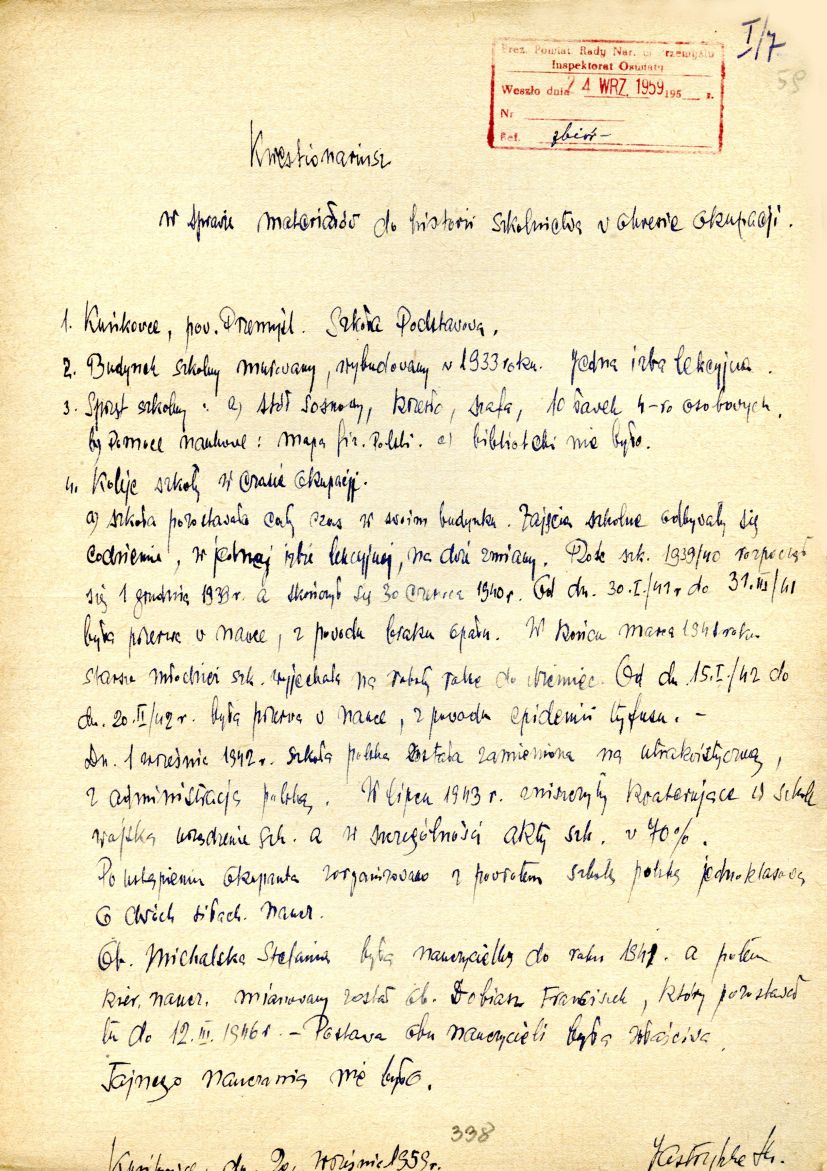 I/7.
59
Prez. Powiat. Rady Nar. w Przemyślu
Inspektorat Oświaty
Weszło dnia 24 WRZ. 1959 195 r.
Nr
Ref. zbiór -
Kwestionariusz
w sprawie materiałów do historii szkolnictwa w okresie okupacji.
1. Kuńkowce, pow. Przemyśl. Szkoła Podstawowa.
2. Budynek szkolny murowany, wybudowany w 1933 roku. Jedna izba lekcyjna.
3. Sprzęt szkolny: a) stół sosnowy, krzesło, szafa, 10 ławek 4-ro osobowych.
b) Pomoce naukowe: mapa fiz. Polski. c) biblioteki nie było.
4. Koleje szkoły w czasie okupacji.
a) szkoła pozostawała cały czas w swoim budynku. Zajęcia szkolne odbywały się
codziennie, w jednej izbie lekcyjnej, na dwie zmiany. Rok szk. 1939/40 rozpoczął
się 1 grudnia 1939 r. a skończył się 30 czerwca 1940 r. Od dn. 30.I./41 r do 31.III/41
była przerwa w nauce, z powodu braku opału. W końcu marca 1941 roku
starsza młodzież szk. wyjechała na roboty rolne do Niemiec. Od dn. 15.I./42 do
dn. 20.II/42 r. była przerwa w nauce, z powodu epidemii tyfusu. -
Dn. 1 września 1942 r. szkoła polska została zamieniona na utrakwistyczną,
z administracją polską. W lipcu 1943 r. zniszczyły kwaterujące w szkole
wojska urządzenie szk. a w szczególności akty szk. w 70%.
Po ustąpieniu okupanta zorganizowano z powrotem szkołę polską jednoklasową
o dwóch siłach naucz.
Ob. Michalska Stefania była nauczycielką do roku 1941. a potem
kier. naucz. mianowany został ob. Dobiasz Franciszek, który pozostawał
tu do 12.III.1946 r. - Postawa obu nauczycieli była właściwa.
Tajnego nauczania nie było.
398
Kuńkowce, dn. września 1959 r.